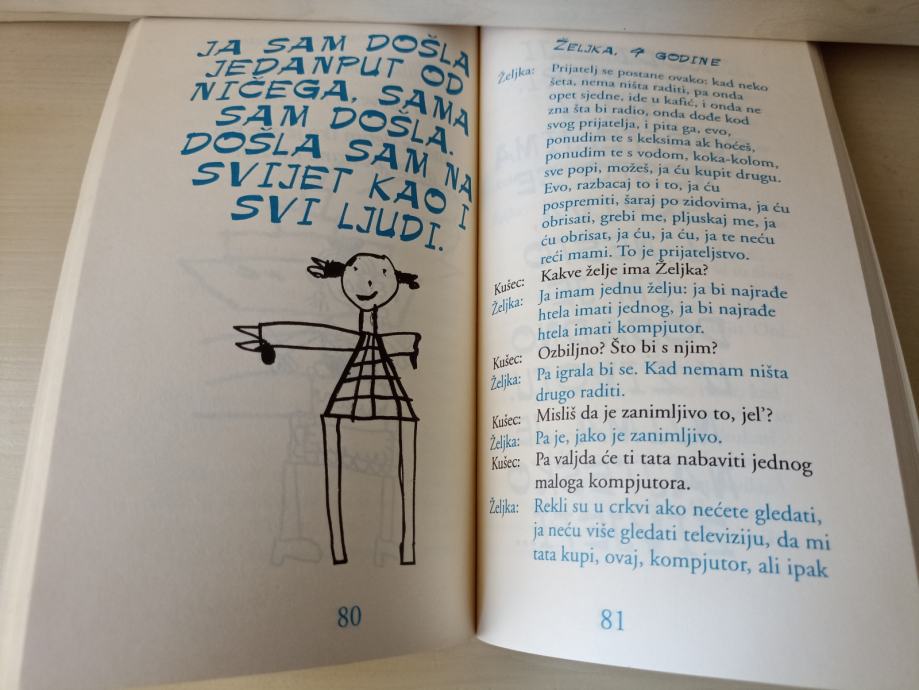 JA SAM DOŠLA
JEDANPUT OD
NIČEGA, SAMA
SAM DOŠLA.
DOŠLA SAM NA
SVIJET KAO I
SVI LJUDI.
80
ŽELJKA, 9 GODINE
Željka: Prijatelj se postane ovako: kad neko
šeta, nema ništa raditi, pa onda
opet sjedne, ide u kafić, i onda ne
zna šta bi radio, onda dođe kod
svog prijatelja, i pita ga, evo,
ponudim te s keksima ak hoćeš,
ponudim te s vodom, koka-kolom,
sve popi, možeš, ja ću kupit drugu.
Evo, razbacaj to i to, ja ću
pospremiti, šaraj po zidovima, ja ću
obrisati, grebi me, pljuskaj me, ja
ću obrisat, ja ću, ja ću, ja te neću
reći mami. To je prijateljstvo.
Kušec: Kakve želje ima Željka?
Željka: Ja imam jednu želju: ja bi najrađe
htela imati jednog, ja bi najrađe
htela imati kompjutor.
Kušec: Ozbiljno? Što bi s njim?
Željka: Pa igrala bi se. Kad nemam ništa
drugo raditi.
Kušec: Misliš da je zanimljivo to, jel'?
Željka: Pa je, jako je zanimljivo.
Kušec: Pa valjda će ti tata nabaviti jednog
maloga kompjutora.
Željka: Rekli su u crkvi ako nećete gledati,
ja neću više gledati televiziju, da mi
tata kupi, ovaj, kompjutor, ali ipak
81